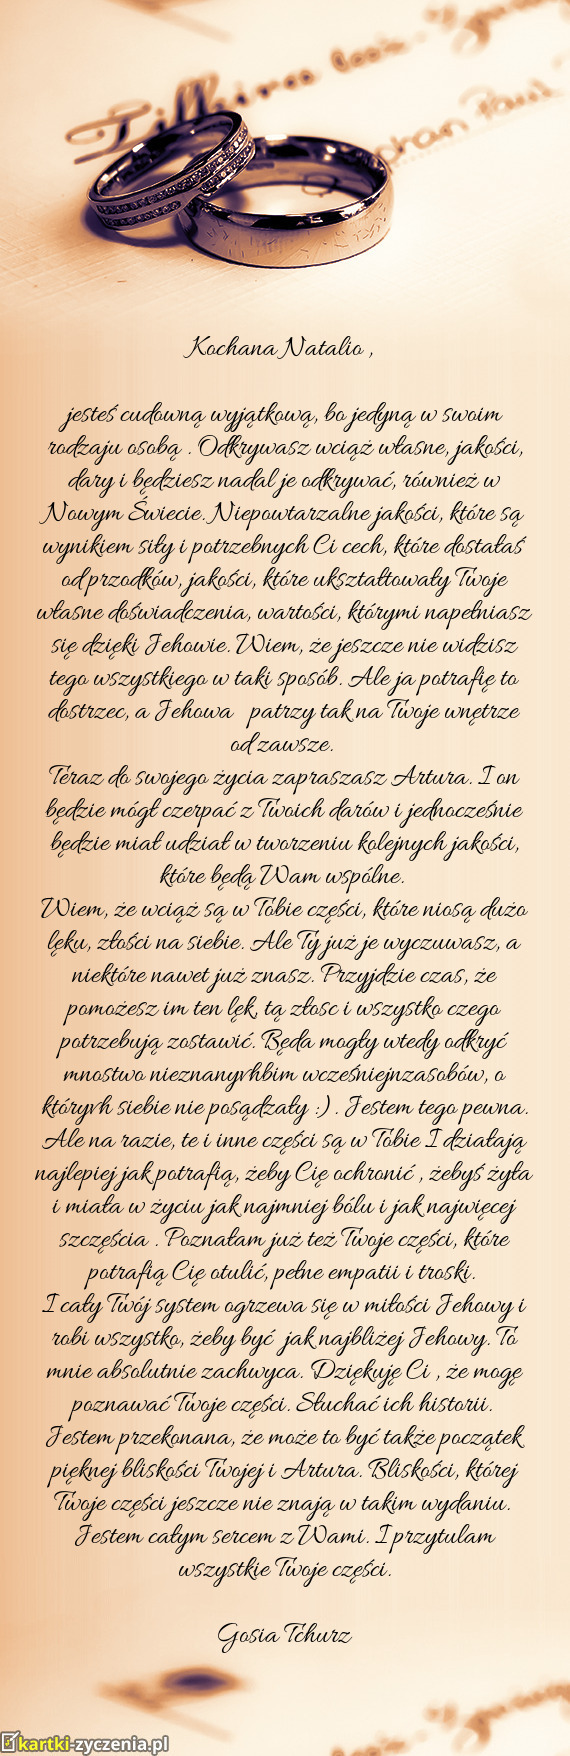 Kochana Natalio ,
jesteś cudowną wyjątkową, bo jedyną w swoim
rodzaju osobą . Odkrywasz wciąż własne, jakości,
dary i będziesz nadal je odkrywać, również w
Nowym Świecie. Niepowtarzalne jakości, które są
wynikiem siły i potrzebnych Ci cech, które dostałaś
od przodków, jakości, które ukształtowały Twoje
własne doświadczenia, wartości, którymi napełniasz
się dzięki Jehowie. Wiem, że jeszcze nie widzisz
tego wszystkiego w taki sposób. Ale ja potrafię to
dostrzec, a Jehowa  patrzy tak na Twoje wnętrze
od zawsze.
Teraz do swojego życia zapraszasz Artura. I on
będzie mógł czerpać z Twoich darów i jednocześnie
będzie miał udział w tworzeniu kolejnych jakości,
które będą Wam wspólne.
Wiem, że wciąż są w Tobie części, które niosą dużo
lęku, złości na siebie. Ale Ty już je wyczuwasz, a
niektóre nawet już znasz. Przyjdzie czas, że
pomożesz im ten lęk, tą złosc i wszystko czego
potrzebują zostawić. Będa mogły wtedy odkryć
mnostwo nieznanyvhbim wcześniejnzasobów, o
któryvh siebie nie posądzały :) . Jestem tego pewna.
Ale na razie, te i inne części są w Tobie I działają
najlepiej jak potrafią, żeby Cię ochronić , żebyś żyła
i miała w życiu jak najmniej bólu i jak najwięcej
szczęścia . Poznałam już też Twoje części, które
potrafią Cię otulić, pełne empatii i troski.
I cały Twój system ogrzewa się w miłości Jehowy i
robi wszystko, żeby być  jak najbliżej Jehowy. To
mnie absolutnie zachwyca. Dziękuję Ci , że mogę
poznawać Twoje części. Słuchać ich historii.
Jestem przekonana, że może to być także początek
pięknej bliskości Twojej i Artura. Bliskości, której
Twoje części jeszcze nie znają w takim wydaniu.
Jestem całym sercem z Wami. I przytulam
wszystkie Twoje części.
Gosia Tchurz
kartki-zyczenia.pl